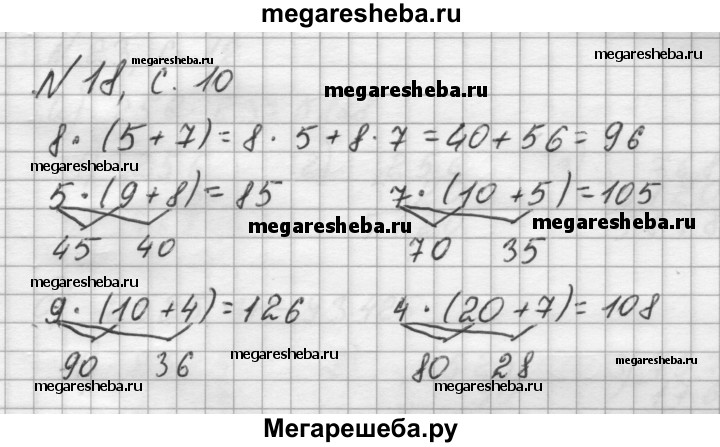 megaresheba.ru
N 18, с. 10
megaresheba.ru
megaresheba.ru
megaresheba.ru
8 · (5 + 7) = 8 · 5 + 8 · 7 = 40 + 56 = 96
megaresheba.ru
5 · (9 + 8) = 85 7 · (10 + 5) = 105
megaresheba.ru megaresheba.ru
45 40 70 35
megaresheba.ru
9 · (10 + 4) = 126 4 · (20 + 7) = 108
90 36 80 28
megaresheba.ru megaresheba.ru
megaresheba.ru megaresheba.ru
Мегарешеба.ру